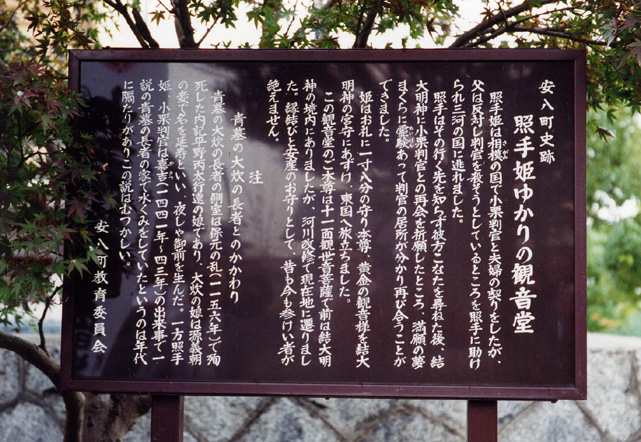 安八町史跡
照手姫ゆかりの観音堂
照手姫は相模の国で小栗判官と夫婦の契りをしたが、
さがみ
父は反対し判官を殺そうとしているところを照手に助け
られ三河の国に逃れました。
照手はその行く先を知らず彼方こなたと尋ねた後、結
大明神に小栗判官との再会を祈願したところ、満願の夢
まくらに霊験あって判官の居所が分かり再び会うことが
できました。
姫はお礼に一寸八分の守り本尊、黄金の観音様を結大
明神の宮守にあずけ、東国へ旅立ちました。
この観音堂のご本尊は十一面観世音菩薩で前は結大明
神の境内にありましたが、河川改修で現在地に遷りまし
た。縁結びと安産のお守りとして、昔も今も参けい者が
絶えません。
注
青墓の大炊の長者とのかかわり
青墓の大炊の長者の側室は保元の乱(一一五六年)で殉
死した内記平野丙太行遠の娘であり、大炊の娘は源義朝
の妾で名を延寿といい、夜しゃ御前を生んだ。一方照手
姫 小栗判官は嘉吉(一四四一年～四三年)の出来事で一
説の青墓の長者の家で水くみをしていたというのは年代
に隔たりがありこの説はむつかしい。
安八町教育委員会